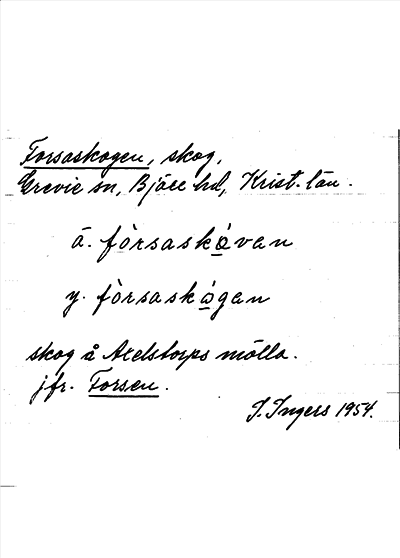 Forsaskogen, skog,
Grevie sn, Bjäre hd, Krist. län.
ä. fòrsaskǫ́van
y. fòrsaskǫ́gan
skog å Axelstorps mölla.
jfr. Forsen.
I. Ingers 1954.